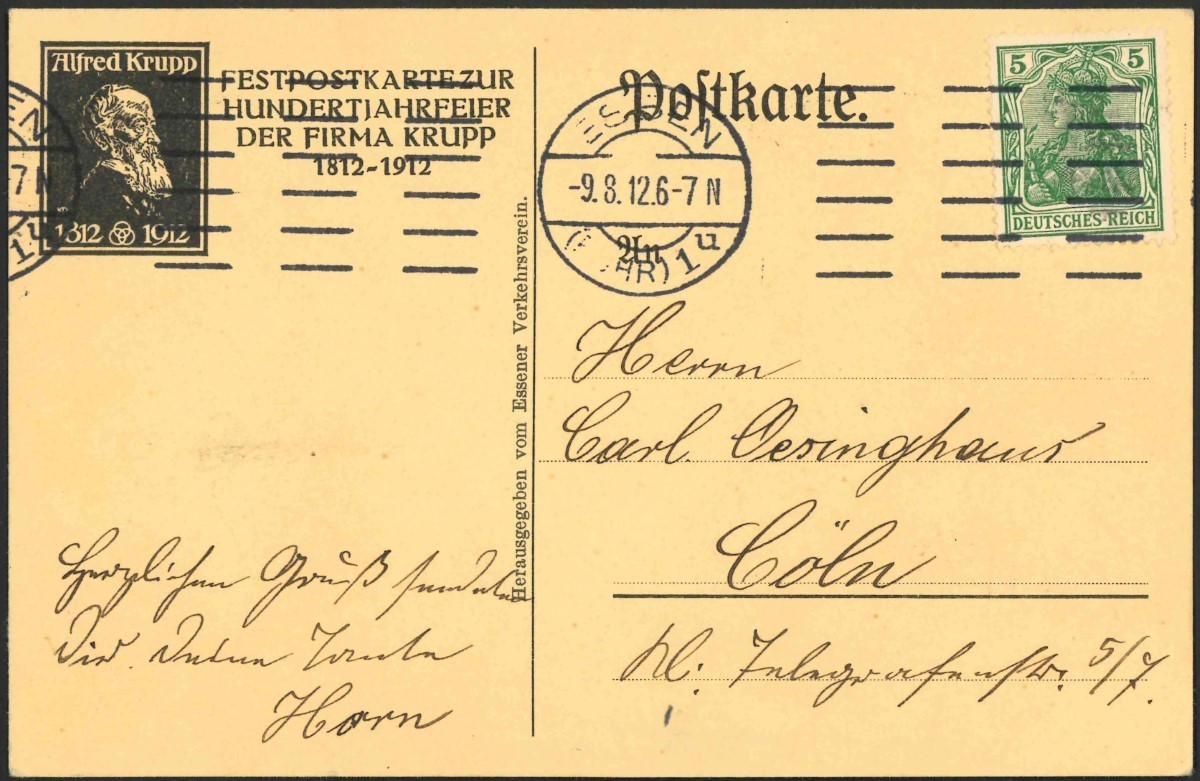 Alfred Krupp
1812 1912
FESTPOSTKARTE ZUR
HUNDERTJAHRFEIER
DER FIRMA KRUPP
1812-1912
EN
7 N
1 u
Postkarte.
ESSEN
-9.8.12.6-7 N
(RUHR) 1 u
An
5 5
DEUTSCHES REICH
Herausgegeben vom Essener Verkehrsverein.
Herrn
Carl Oesinghaus
Cöln
Kl: Telegrafenstr. 5/7.
Herzlichen Gruß sendet
Dir Deine Tante
Horn